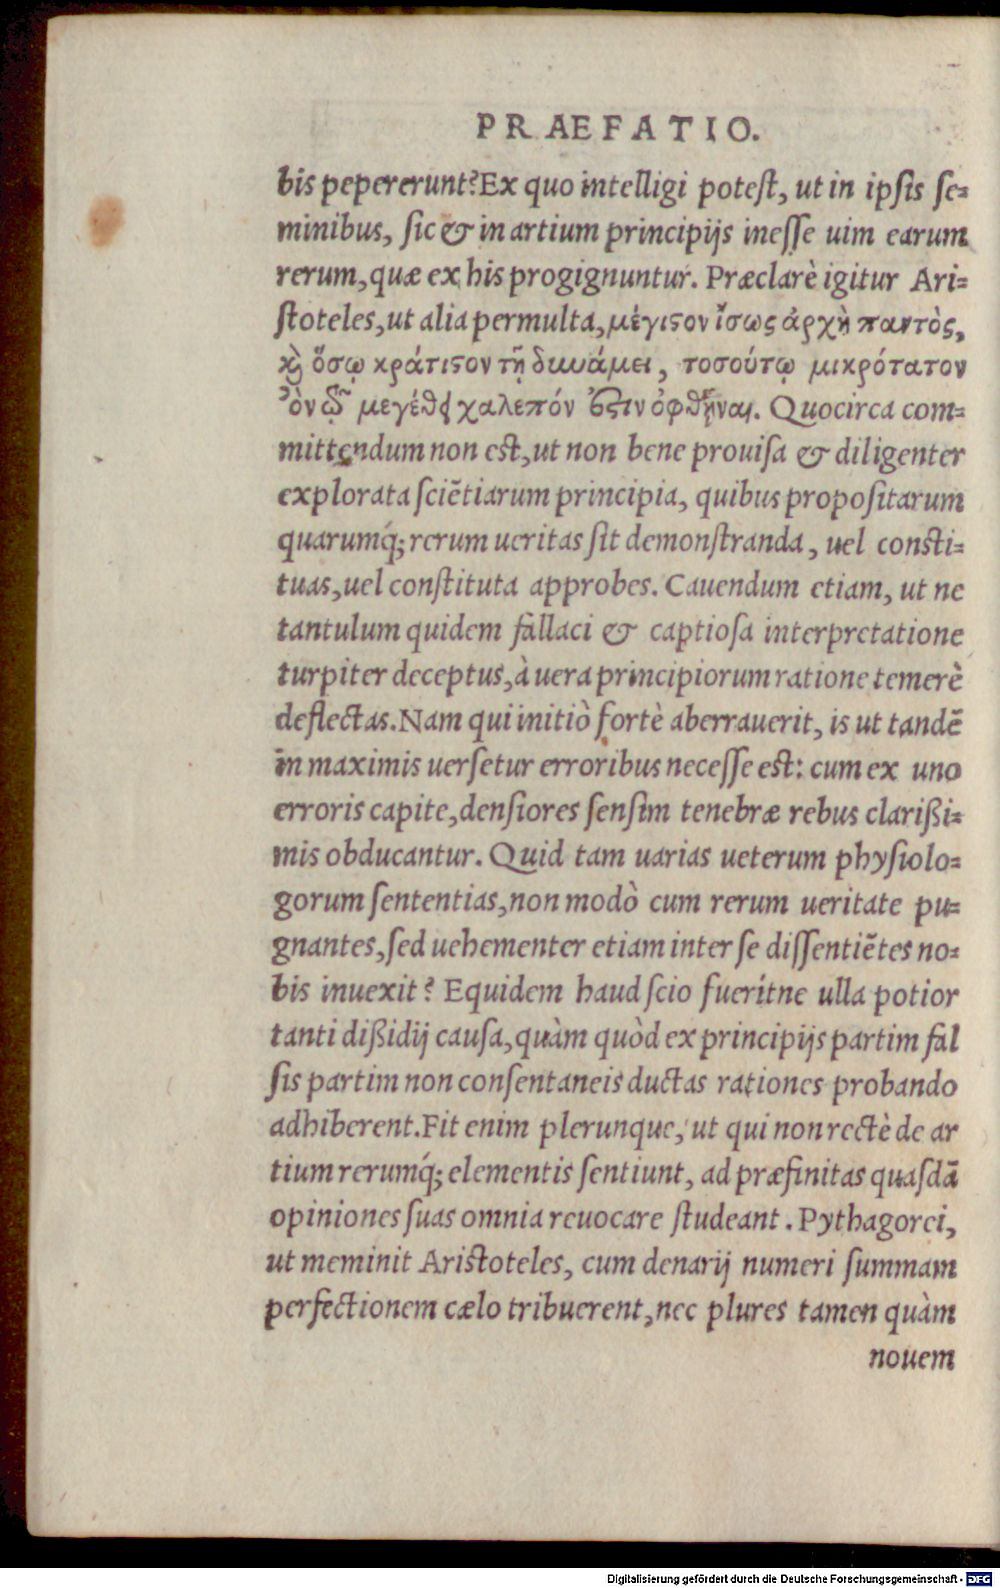 PRAEFATIO.
bis pepererunt? Ex quo intelligi potest, ut in ipsis se-
minibus, sic & in artium principijs inesse uim earum
rerum, quæ ex his progignuntur. Præclarè igitur Ari-
stoteles, ut alia permulta, μέγιϛον ἴσως ἀρχὴ παντὸς,
ϗ̀ ὅσῳ κράτιϛον τῇ δυνάμει, τοσούτῳ μικρότατον
ὂν τῷ μεγέθει χαλεπόν ἐϛιν ὀφθῆναι. Quocirca com-
mittendum non est, ut non bene prouisa & diligenter
explorata sciẽtiarum principia, quibus propositarum
quarumq́; rerum ueritas sit demonstranda, uel consti-
tuas, uel constituta approbes. Cauendum etiam, ut ne
tantulum quidem fallaci & captiosa interpretatione
turpiter deceptus, à uera principiorum ratione temerè
deflectas. Nam qui initiò fortè aberrauerit, is ut tandẽ
in maximis uersetur erroribus necesse est: cum ex uno
erroris capite, densiores sensim tenebræ rebus clarißi-
mis obducantur. Quid tam uarias ueterum physiolo-
gorum sententias, non modò cum rerum ueritate pu-
gnantes, sed uehementer etiam inter se dissentiẽtes no-
bis inuexit? Equidem haud scio fueritne ulla potior
tanti dißidij causa, quàm quòd ex principijs partim fal
sis partim non consentaneis ductas rationes probando
adhiberent. Fit enim plerunque, ut qui non rectè de ar
tium rerumq́; elementis sentiunt, ad præfinitas quasdã
opiniones suas omnia reuocare studeant. Pythagorei,
ut meminit Aristoteles, cum denarij numeri summam
perfectionem cælo tribuerent, nec plures tamen quàm
nouem
Digitalisierung gefördert durch die Deutsche Forschungsgemeinschaft - DFG